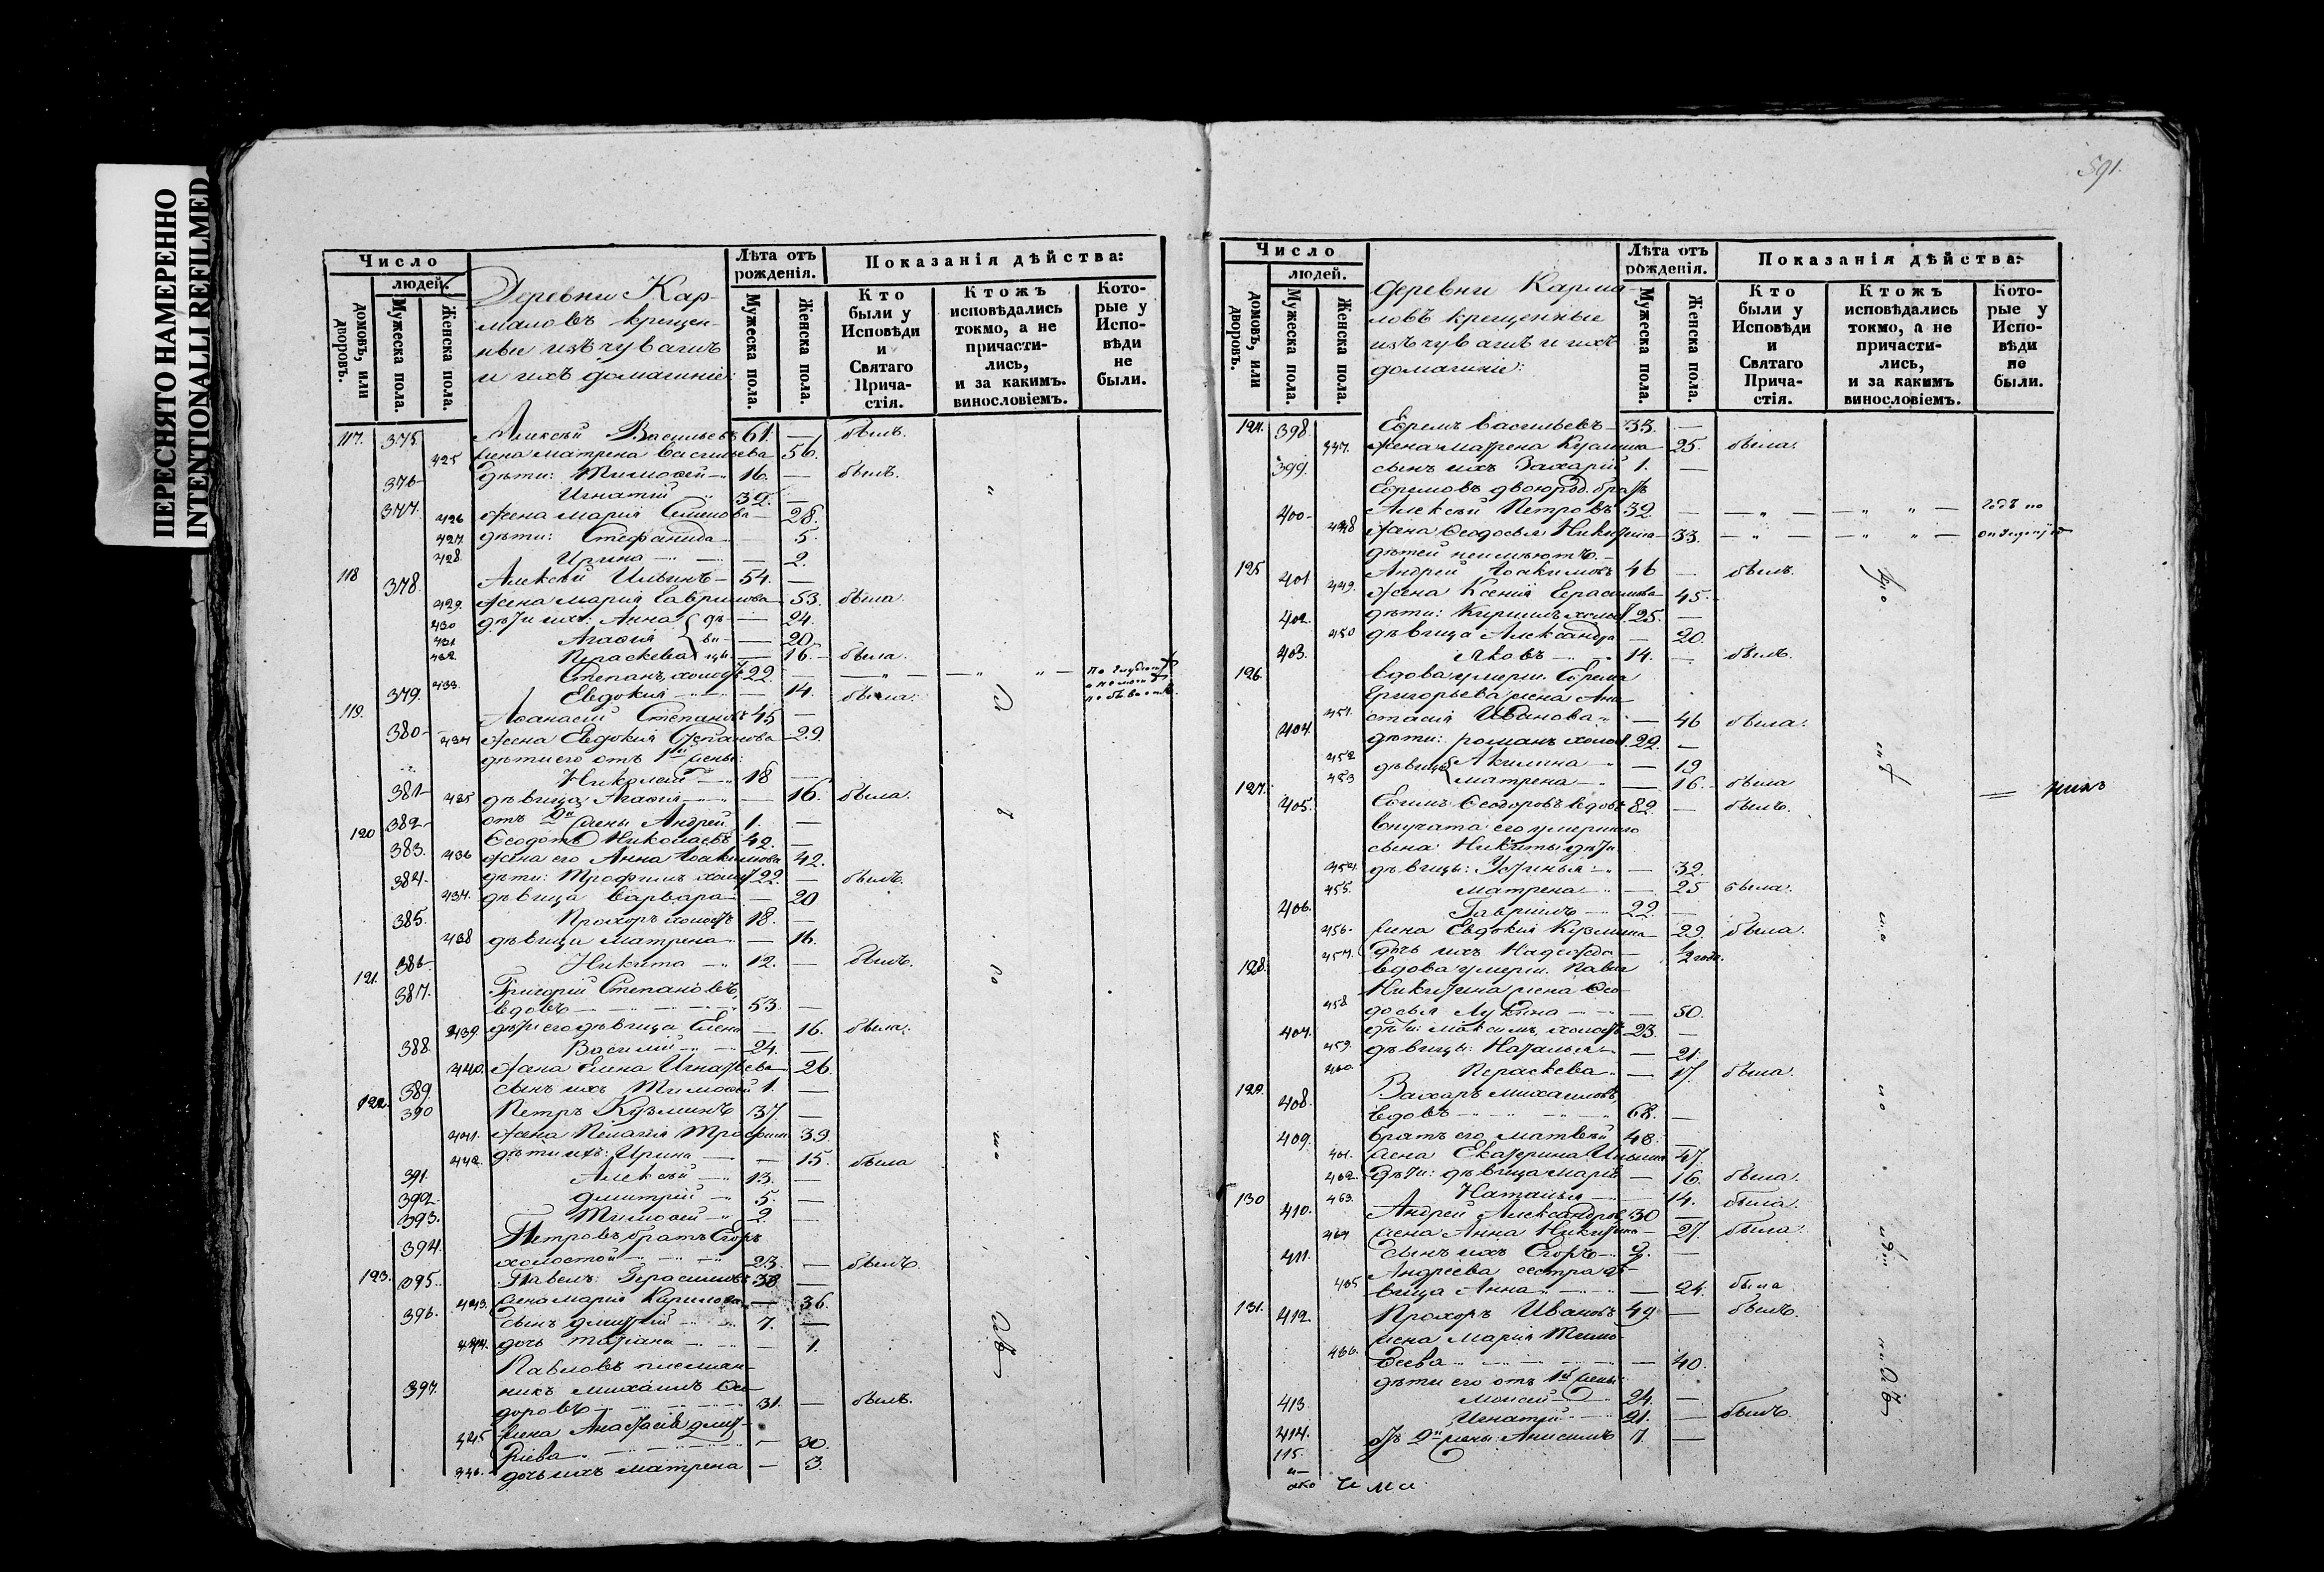 ПЕРЕСНЯТО НАМЕРЕННО
INTENTIONALLI REFILMED
591.
Число
людей.
домовъ, или дворовъ.
Мужеска пола.
Женска пола.
Деревни Кар-
маловъ крещен-
ные изъ чувашъ
и ихъ домашнiе:
Лѣта отъ рожденiя.
Мужеска пола.
Женска пола.
Показанiя дѣйства:
Кто были у Исповѣди и Святаго Прича-стiя.
Ктожъ исповѣдались токмо, а не причасти-лись, и за какимъ. винословiемъ.
Кото-рые у Испо-вѣди не были.
117. 375. Алексѣй Васильевъ 61. — былъ.
425 жена Матрена Васильева 56.
376 дѣти: Тимоѳей 16. — былъ.
377. Игнатiй 39.
426 жена Марiя Семенова — 28.
427. дѣти: Стефанида — 5.
428. Ирина — 2.
118 378. Алексѣй Ильинъ 54. —
429. жена Марiя Гаврилова 53. была
430 дѣти ихъ: Анна дѣ- — 24.
431 Агаѳiя ви- — 20.
432 Параскева цы — 16. была.
379. Степанъ холостъ 22. —
433. Евдокiя — 14. была.
119. 380. Аѳанасiй Степановъ 45 —
434 жена Евдокiя Степанова 29.
дѣти его отъ 1й жены:
381 Николай 18 —
435 дѣвица Агаѳiя — 16. была.
382. отъ 2й жены Андрей 1. —
120 383. Ѳеодотъ Николаевъ 42. —
436 жена его Анна Іоакимова 42.
384. дѣти: Трофимъ холостъ 22. — былъ.
437. дѣвица Варвара — 20
385. Прохоръ холостъ 18. —
438 дѣвица Матрена — 16.
386. Никита 12. — былъ.
121. 387. Григорiй Степановъ,
вдовъ 53. —
439. дѣти его дѣвица Елена — 16. была.
388. Василiй 24. —
440. жена Елена Игнатьева 26.
389. сынъ ихъ Тимоѳей 1. —
122. 390 Петръ Кузминъ 37. —
441. жена Пелагiя Трофим 39.
442. дѣти ихъ: Ирина — 15. была
391. Алексѣй 13. —
392. Дмитрiй 5. —
393. Тимоѳей 2. —
394. Петровъ братъ Егоръ
холостой 23. — былъ.
123. 395. Павелъ Герасимовъ 38
443. жена Марiя Кирилова — 36.
396. сынъ Дмитрiй 7. —
444. дочь Татiана — 1.
Павловъ племян-
397. никъ Михаилъ Ѳео-
доровъ 31. — былъ.
445 жена Анастасiя Дмит-
рiева — 30.
446. дочь ихъ Матрена — 3.
Число
людей.
домовъ, или дворовъ.
Мужеска пола.
Женска пола.
Деревни Карма-
ловъ крещенные
изъ чувашъ и ихъ
домашнiе:
Лѣта отъ рожденiя.
Мужеска пола.
Женска пола.
Показанiя дѣйства:
Кто были у Исповѣди и Святаго Прича-стiя.
Ктожъ исповѣдались токмо, а не причасти-лись, и за какимъ винословiемъ.
Кото-рые у Испо-вѣди не были.
124. 398. Ефремъ Васильевъ 35. —
447. жена Матрена Кузмина 25. была.
399. сынъ ихъ Захарiй 1. —
Ефремовъ двоюрод. братъ
400. Алексѣй Петровъ 32. —
448 жена Ѳеодосья Никитина 33.
дѣтей неимѣютъ.
125 401 Андрей Іоакимовъ 46 — былъ.
449. жена Ксенiя Герасимова 45.
402. дѣти: Кирилъ холост 25. —
450 дѣвица Александра — 20.
403. Яковъ 14. — былъ.
126. вдова умерш. Ефрема
Григорьева жена Ана-
451. стасiя Иванова — 46 была.
404. дѣти: Романъ холост. 22. —
452 дѣвицы Акилина — 19
453 Матрена — 16. была
127. 405. Ефимъ Ѳеодоровъ вдовъ 82. — былъ.
внучата его умершаго
сына Никиты дѣти
454. дѣвицы: Устинья — 32.
455. Матрена — 25 была.
406. Гаврiилъ 22. —
456. жена Евдокiя Кузмина 29. была.
457. дочь ихъ Надежда — 1/2 года.
128. вдова умерш. Павла
Никитина жена Ѳео-
458 досья Лукина — 50.
407. дѣти: Максимъ холостъ 23. —
459. дѣвицы: Наталья — 21.
460. Параскева — 17. была.
129. 408. Захаръ Михаиловъ,
вдовъ 68. —
409. братъ его Матвѣй 48. —
461. жена Екатерина Ильина 47.
462. дѣти: дѣвица Марiя — 16. была.
463. Наталья — 14. была.
130 410. Андрей Александров. 30 —
464 жена Анна Никитина 27. была.
411. сынъ ихъ Егоръ 3. —
Андреева сестра дѣ-
465 вица Анна — 24. была
131. 412. Прохоръ Ивановъ 49. — былъ.
жена Марiя Тимо-
466. ѳеева — 40.
дѣти его отъ 1й жены:
413 Моисей 24. —
414. Игнатiй 21. — былъ.
115. отъ 2й жены: Анисимъ 7. —